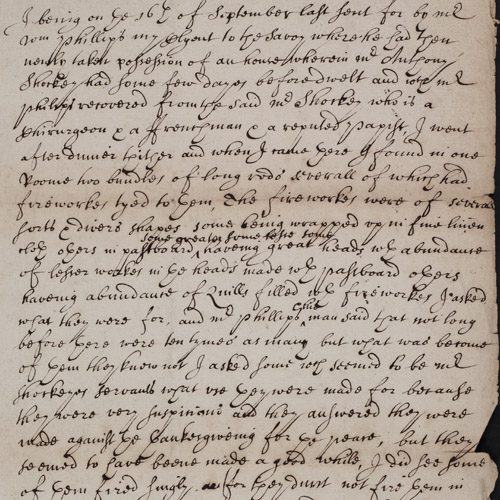 I being on ye 16th of September last sent for by mr
Wm Phillips my Clyent to the Savoy where he had then
newly taken possession of an house wherein mr Anthony
Shockey had some few dayes before dwelt and wch mr
Phillips recovered from the said mr Shockey who is a
Chirurgeon & a Frenchman & a reputed Papist, I went
after dinner thither and when I came there I found in one
Roome two bundles of long rods severall of which had
fireworkes tyed to them, The fireworkes were of severall
sorts & divers shapes some being wrapped up in fine linen
some greater some lesse some
cloth others in pastboard, haveing great heads wth abundance
of lesser workes in ye heads made wth pastboard others
haveing abundance of Quills filled wth fireworkes I asked
what they were for, and mr Phillips man said that not long
before there were ten tymes as many but what was become
of them they know not I asked some wch seemed to be mr
Shockeyes servants what use they were made for because
they were very suspicious and they answered they were
made against ye thanksgiveing for ye peace, but they
seemed to have beene made a good while, I did see some
of them fired singly for they durst not fire them in